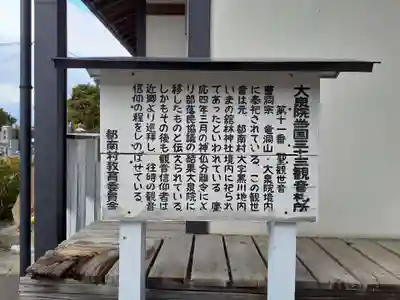 大泉院当国三十三観音札所
第十一番 聖観世音
曹洞宗 竜洞山 大泉院境内
に奉祀されている。この観世
音は元、都南村大字黒川地内
いまの舘林神社境内に祀られ
てあったといわれている 慶
応四年三月の神仏分離令によ
り部落民協議の結果大泉院に
移したものと伝えられている。
しかもその後も観音信仰者は
近郷より巡拝し 往時の観音
信仰の程をしのばせている。
都南村教育委員会